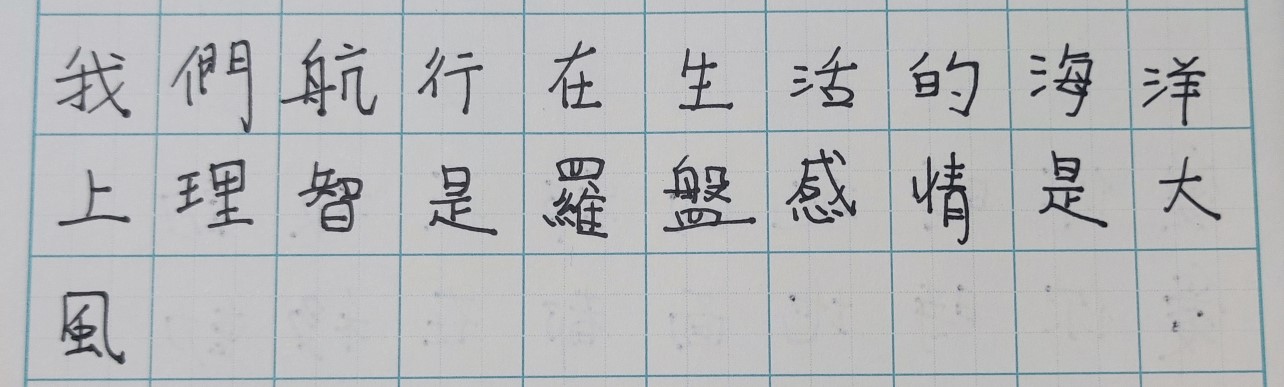 我們航行在生活的海洋
上理智是羅盤感情是大
風